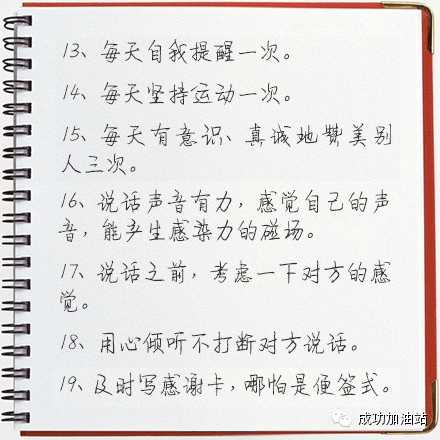 13、每天自我提醒一次。
14、每天坚持运动一次。
15、每天有意识、真诚地赞美别
人三次。
16、说话声音有力，感觉自己的声
音，能产生感染力的磁场。
17、说话之前，考虑一下对方的感
觉。
18、用心倾听不打断对方说话。
19、及时写感谢卡，哪怕是便签式。
成功加油站